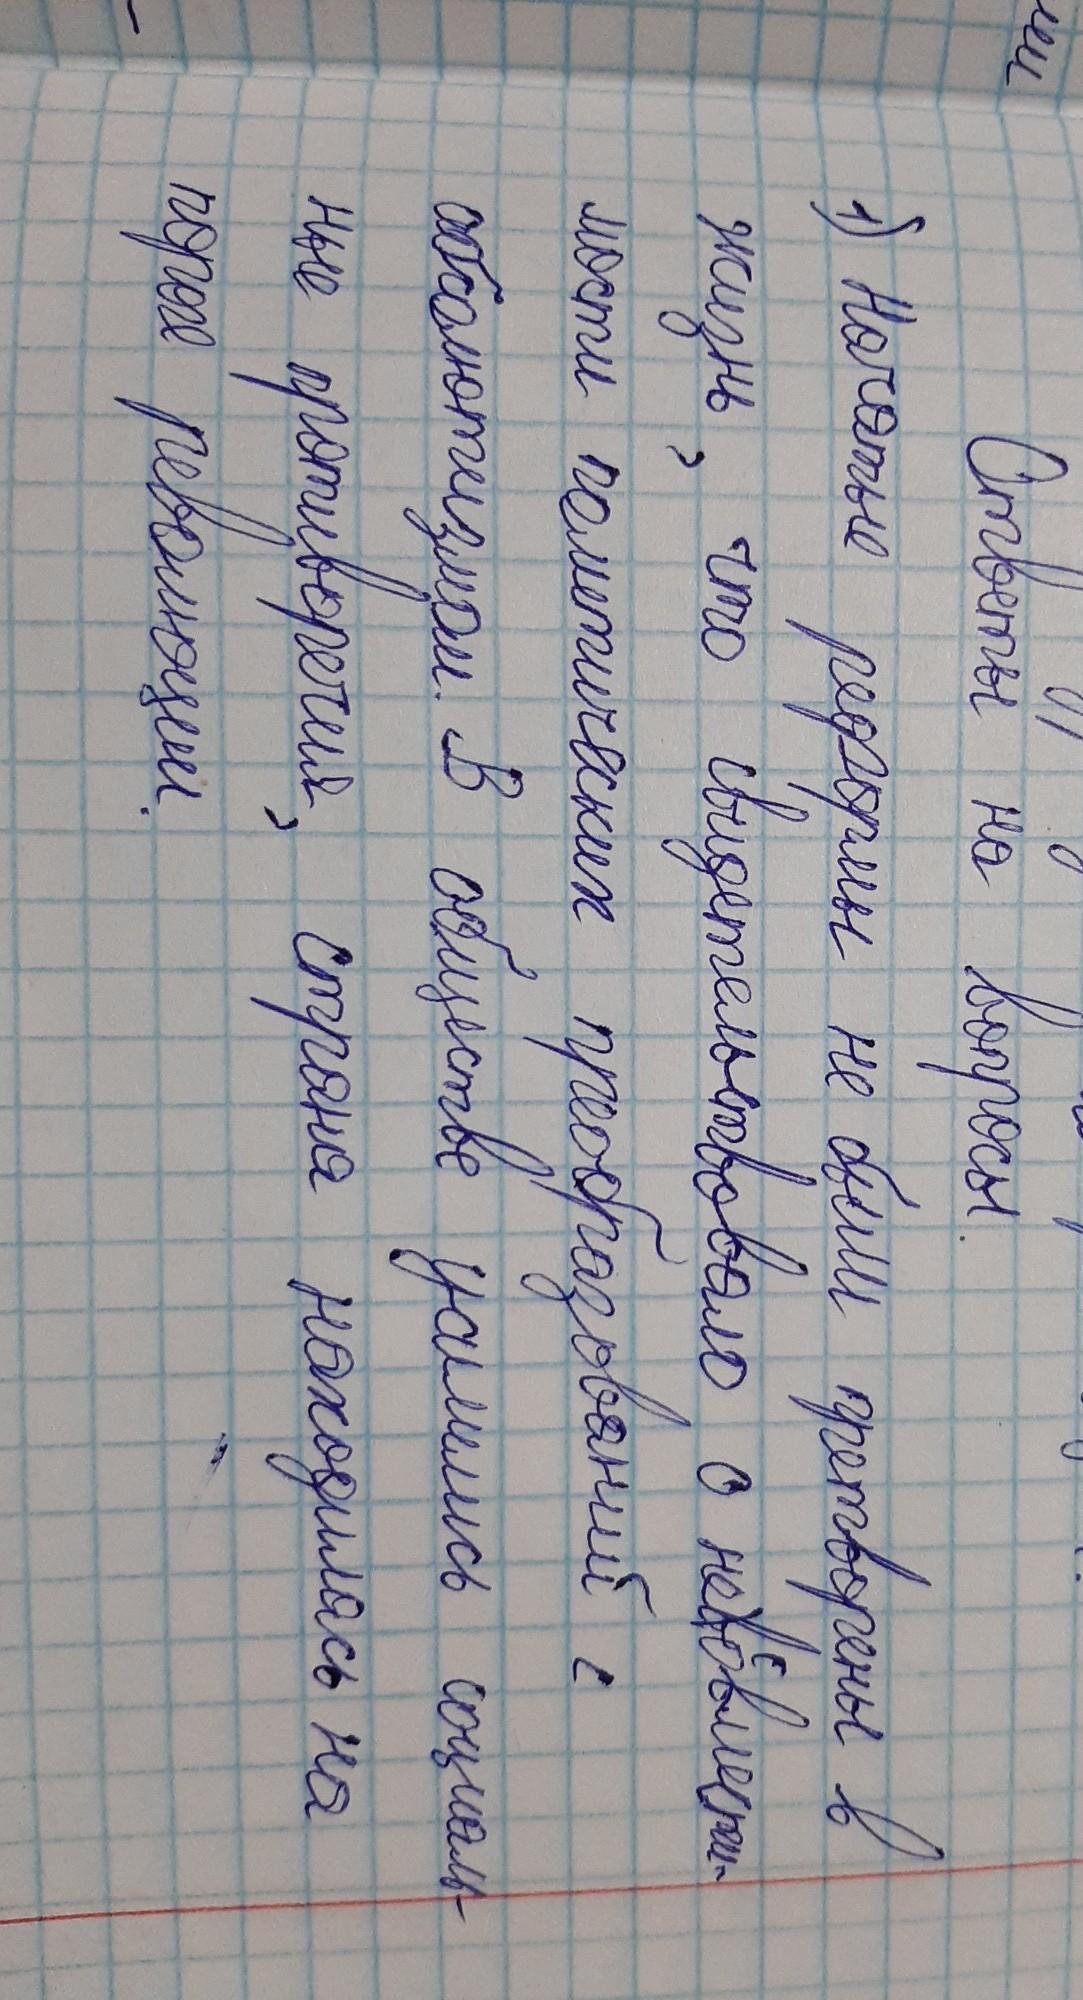 Ответы на вопросы.
1) Начатые реформы не были претворены в
жизнь, что свидетельствовало о невовмести-
мости политических преобразований с
абсолютизмом. В обществе усилились социаль-
ные противоречия, страна находилась на
пороге революции.